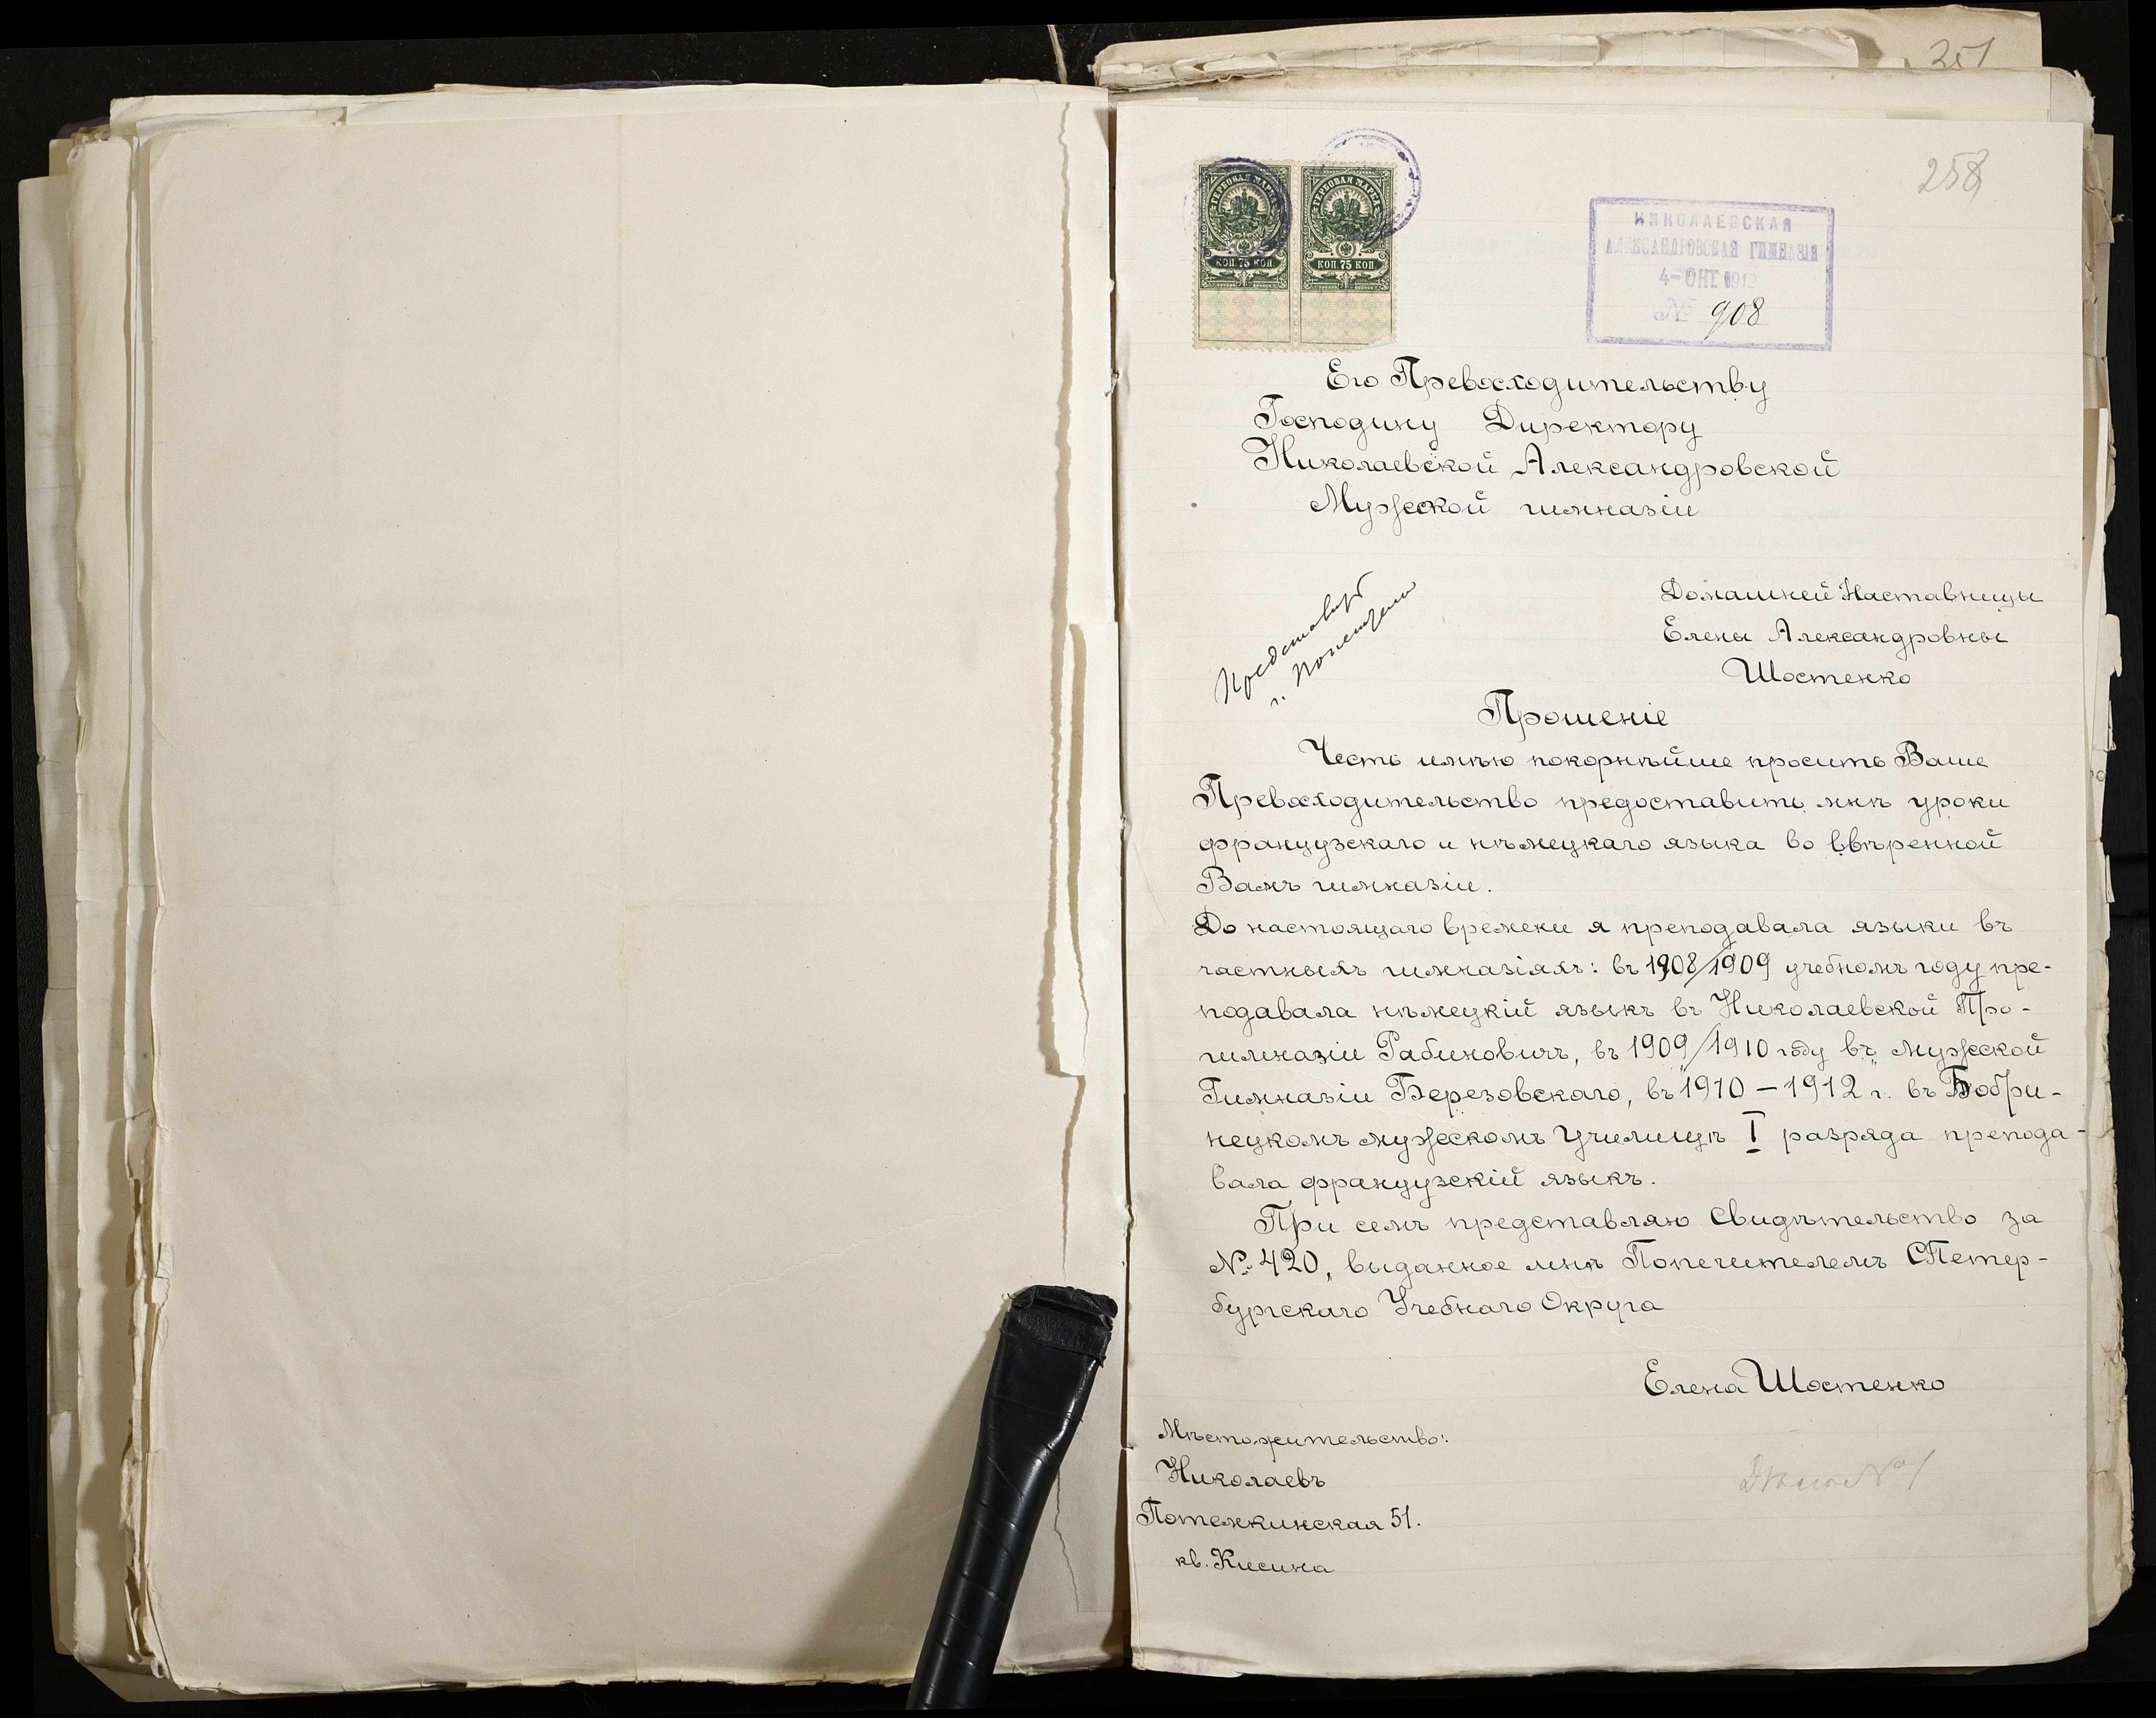 251
258
ГЕРБОВАЯ МАРКА
КОП. 75 КОП.
ГЕРБОВАЯ МАРКА
КОП. 75 КОП.
НИКОЛАЕВСКАЯ
АЛЕКСАНДРОВСКАЯ ГИМНАЗІЯ
4- ОКТ. 1912
№ 908
Его Превосходительству
Господину Директору
Николаевской Александровской
Мужской гимназіи
Домашней Наставницы
Елены Александровны
Шостенко
Прошеніе
Честь имѣю покорнѣйше просить Ваше
Превосходительство предоставить мнѣ уроки
французскаго и нѣмецкаго языка во ввѣренной
Вамъ гимназіи.
До настоящаго времени я преподавала языки въ
частныхъ гимназіяхъ: въ 1908/1909 учебномъ году пре-
подавала нѣмецкій языкъ въ Николаевской Про-
гимназіи Рабиновичъ, въ 1909/1910 году въ мужской
Гимназіи Березовскаго, въ 1910 – 1912 г. въ Бобри-
нецкомъ мужскомъ Училищѣ I разряда препода-
вала французскій языкъ.
При семъ представляю Свидѣтельство за
№ 420, выданное мнѣ Попечителемъ СПетер-
бургскаго Учебнаго Округа
Елена Шостенко
Мѣстожительство:
Николаевъ
Потемкинская 51.
кв. Кисина